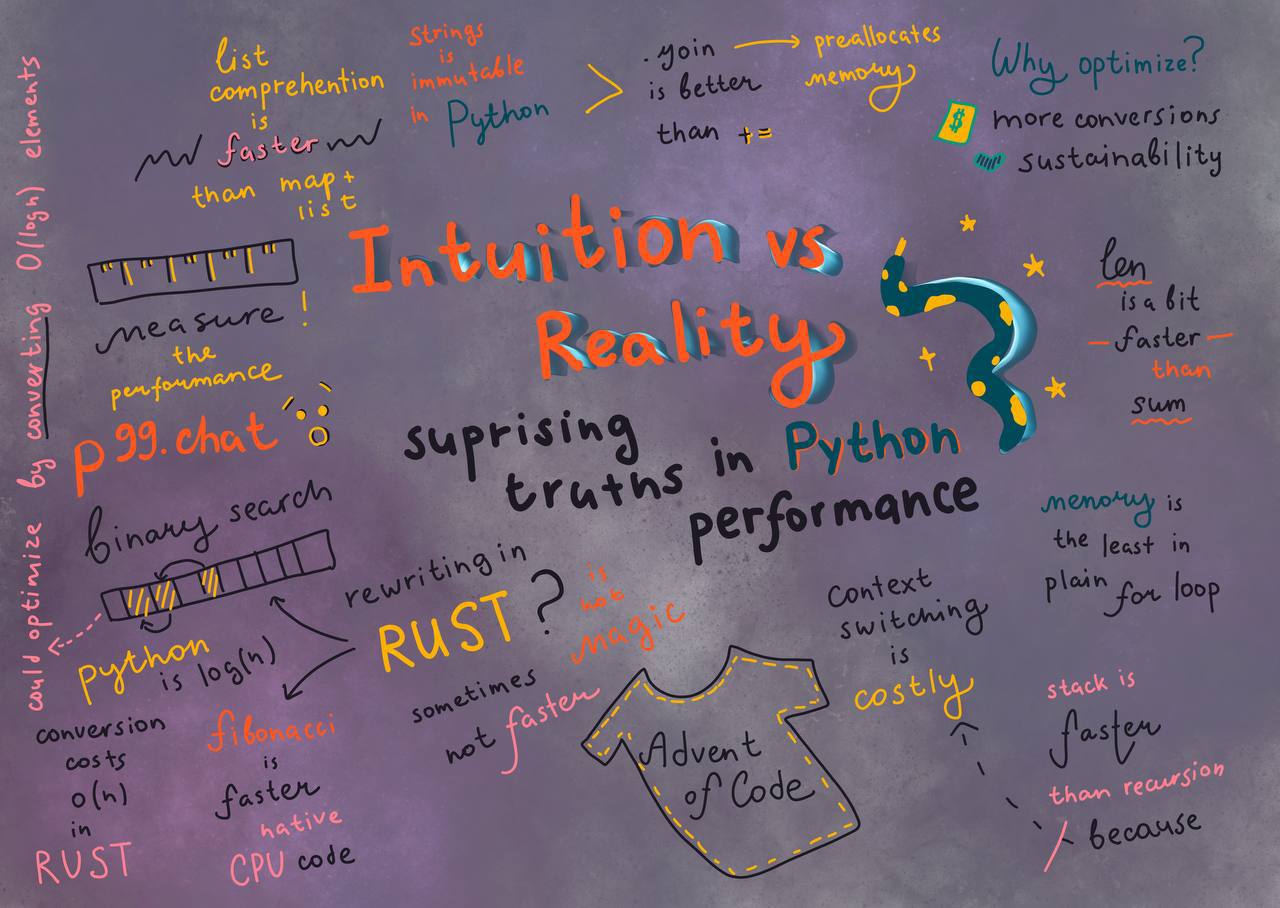 list
comprehention
is
faster
than map +
list
Strings
is
immutable
in Python
.join
is better
than +=
preallocates
memory
Why optimize?
$ more conversions
sustainability
Intuition vs
Reality
suprising
truths in Python
performance
len
is a bit
faster
than
sum
measure!
the
performance
p99.chat
binary search
python
is log(n)
could optimize by converting O(logn) elements
conversion
costs
o(n)
in
RUST
rewriting in
RUST?
is
not
magic
sometimes
not faster
fibonacci
is
faster
native
CPU code
Advent
of Code
Context
switching
is
costly
memory is
the least in
plain for loop
stack is
faster
than recursion
because